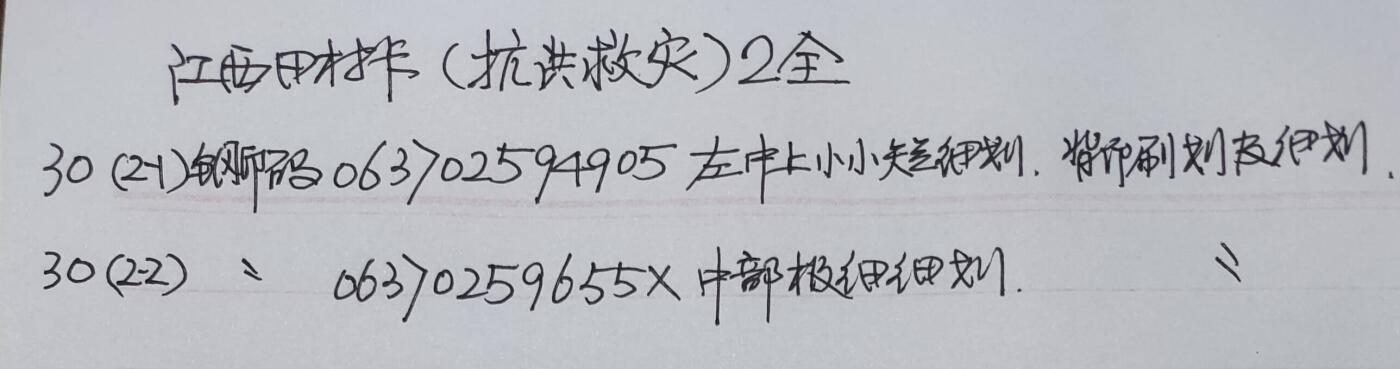 江西田村卡（抗洪救灾）2全
30(2-1)钢印码063702594905左中上小小短细划.背印刷划及细划.
30(2-2) 〃 06370259655X中部极细细划. 〃